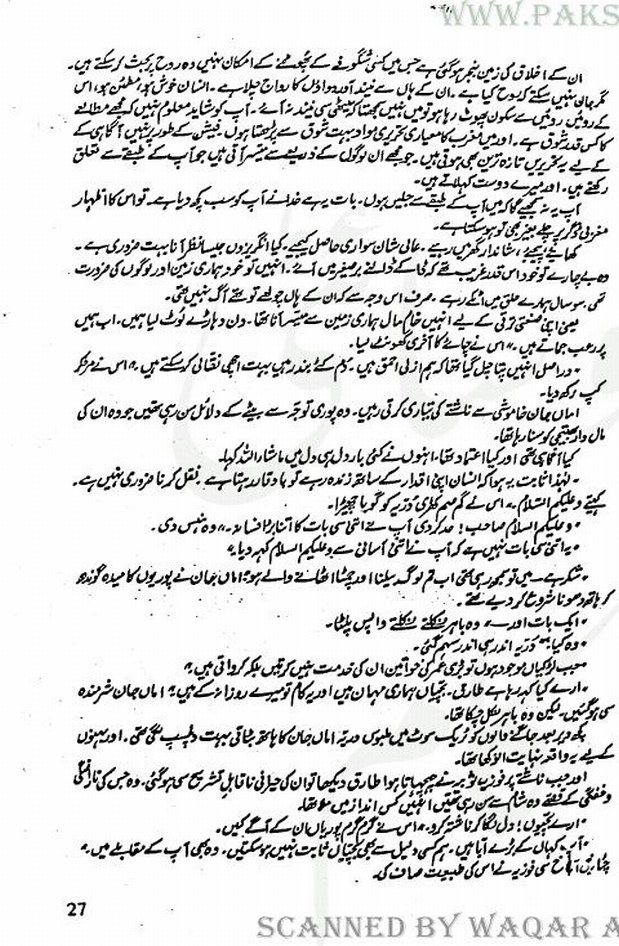 WWW.PAKS
ان کے اخلاق کی زمین بنجر ہو گئی ہے جس میں کسی شگوفے کے پھوٹنے کے امکان نہیں وہ روح پر بحث کر سکتے ہیں۔
مگر جان نہیں سکتے کہ روح کیا ہے۔ ان کے ہاں سے نیند آور دواؤں کا رواج چلا ہے۔ انسان خوش ہو، مطمئن ہو، اس
کے روئیں روئیں سے سکون پھوٹ رہا ہو تو میں نہیں سمجھتا کہ میٹھی سی نیند نہ آئے۔ آپ کو شاید معلوم نہیں کہ مجھے مطالعے
کا کس قدر شوق ہے۔ اور میں مغرب کا معیاری تحریری مواد بہت شوق سے پڑھتا ہوں۔ فیشن کے طور پر نہیں آگاہی کے
لیے یہ تحریریں تازہ ترین بھی ہوتی ہیں۔ جو مجھے ان لوگوں کے ذریعے سے میسر آتی ہیں جو آپ کے طبقے سے تعلق
رکھتے ہیں۔ اور میرے دوست کہلاتے ہیں۔
آپ یہ نہ سمجھیے گا کہ میں آپ کے طبقے سے جلیس ہوں۔ بات یہ ہے خدا نے آپ کو سب کچھ دیا ہے۔ تو اس کا اظہار
مغربی ڈگر پر چلے بغیر بھی تو ہو سکتا ہے۔
کھائیے پیجیے، شاندار گھر میں رہیے۔ عالی شان سواری حاصل کیجیے۔ کیا انگریزوں جیسا نظر آنا بہت ضروری ہے۔
وہ بے چارے تو خود اس قدر غریب تھے کہ ڈاکے ڈالنے برصغیر میں آئے۔ انہیں تو خود ہماری زمین اور لوگوں کی ضرورت
تھی۔ سو سال ہمارے حلق میں اٹکے رہے۔ صرف اس وجہ سے کہ ان کے ہاں چولھے تو تھے آگ نہیں تھی۔
یعنی اپنی صنعتی ترقی کے لیے انہیں خام مال ہماری زمین سے میسر آنا تھا۔ دن دہاڑے لوٹ لیا ہمیں۔ اب ہمیں
پر رعب جماتے ہیں۔" اس نے چائے کا آخری گھونٹ لیا۔
"دراصل انہیں پتا چل گیا تھا کہ ہم ازلی احمق ہیں۔ دم کٹے بندر ہیں بہت اچھی نقالی کر سکتے ہیں۔" اس نے مڑ کر
کپ رکھ دیا۔
اماں جان خاموشی سے ناشتے کی تیاری کرتی رہیں۔ وہ پوری توجہ سے بیٹے کے دلائل سن رہی تھیں جو وہ ان کی
مال دار بھتیجی کو سنا رہا تھا۔
کیا آگاہی تھی اور کیا اعتماد تھا۔ انہوں نے کئی بار دل ہی دل میں ماشاء اللہ کہا۔
"لہٰذا ثابت یہ ہوا کہ انسان اپنی اقدار کے ساتھ زندہ رہے تو باوقار رہتا ہے۔ نقل کرنا ضروری نہیں ہے۔
کہیے وعلیکم السلام۔" اس نے گم صم کھڑی دریہ کو گویا چھیڑا۔
"وعلیکم السلام صاحب! حد کر دی آپ نے اتنی سی بات کا اتنا بڑا فسانہ۔" وہ ہنس دی۔
"یہ اتنی سی بات نہیں ہے کہ آپ نے اتنی آسانی سے وعلیکم السلام کہہ دیا۔"
"شکر ہے۔ میں تو سمجھ رہی تھی اب تم لوگ بیلنا اور چمٹا اٹھانے والے ہو۔" اماں جان نے پوریوں کا میدہ گوندھ
کر ہاتھ دھونا شروع کر دیے تھے۔
"ایک بات اور۔" وہ باہر نکلتے نکلتے واپس پلٹا۔
"وہ کیا؟" دریہ اندر ہی اندر سہم گئی۔
"جب لڑکیاں موجود ہوں تو بڑی عمر کی خواتین ان کی خدمت نہیں کرتیں بلکہ کرواتی ہیں۔"
"ارے کیا کہہ رہا ہے طارق۔ بچیاں ہماری مہمان ہیں اور یہ کام تو میرے روزانہ کے ہیں۔" اماں جان شرمندہ
سی ہو گئیں۔ لیکن وہ باہر نکل چکا تھا۔
کچھ دیر بعد جاگنے والوں کو ٹریک سوٹ میں ملبوس دریہ اماں جان کا ہاتھ بٹاتی بہت دلچسپ لگی تھی۔ اور بہنوں
کے لیے یہ واقعہ نہایت انوکھا تھا۔
اور جب ناشتے پر فوزیہ نوزیہ نے چہچہاتا ہوا طارق دیکھا تو ان کی حیرانی ناقابل تشریح سی ہو گئی۔ وہ جس کی ناراضگی
و خفگی کے قصے وہ شام سے سن رہی تھیں انہیں کس انداز میں ملا تھا۔
"ارے بچیو! دل لگا کر ناشتہ کرو۔" اس نے گرم گرم پوریاں ان کے آگے کیں۔
"آپ کہاں کے بڑے آبا ہیں۔ ہم کسی دلیل سے بھی بچیاں ثابت نہیں ہو سکتیں۔ وہ بھی آپ کے مقابلے میں۔"
سی فوزیہ نے اس کی طبیعت صاف کی۔
27
SCANNED BY WAQAR A